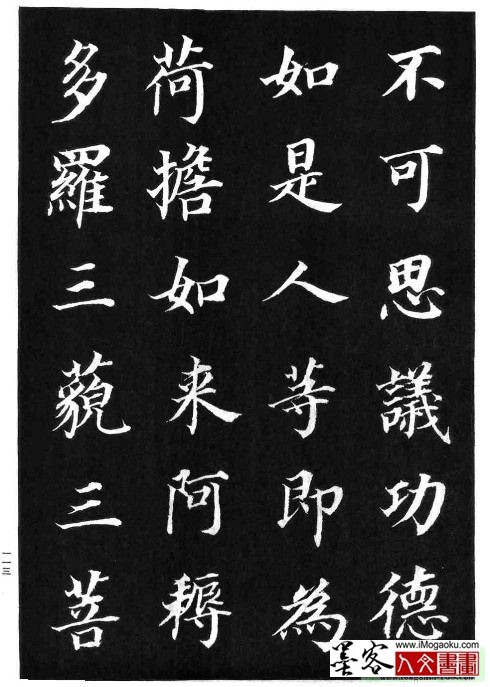 不可思議功德
如是人等即為
荷擔如来阿耨
多羅三藐三菩
一一三
www.iMogaoku.com
墨客
人文書畫